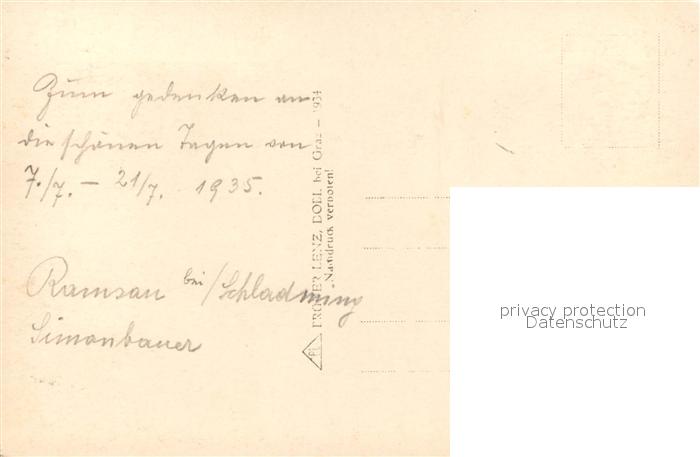 Zum gedenken an
die schönen Tagen von
7./7. – 21/7. 1935.
Ramsau bei/Schladming
Simonbauer
LENZ, DOBL bei Graz – 1934
„Nachdruck verboten!
privacy protection
Datenschutz